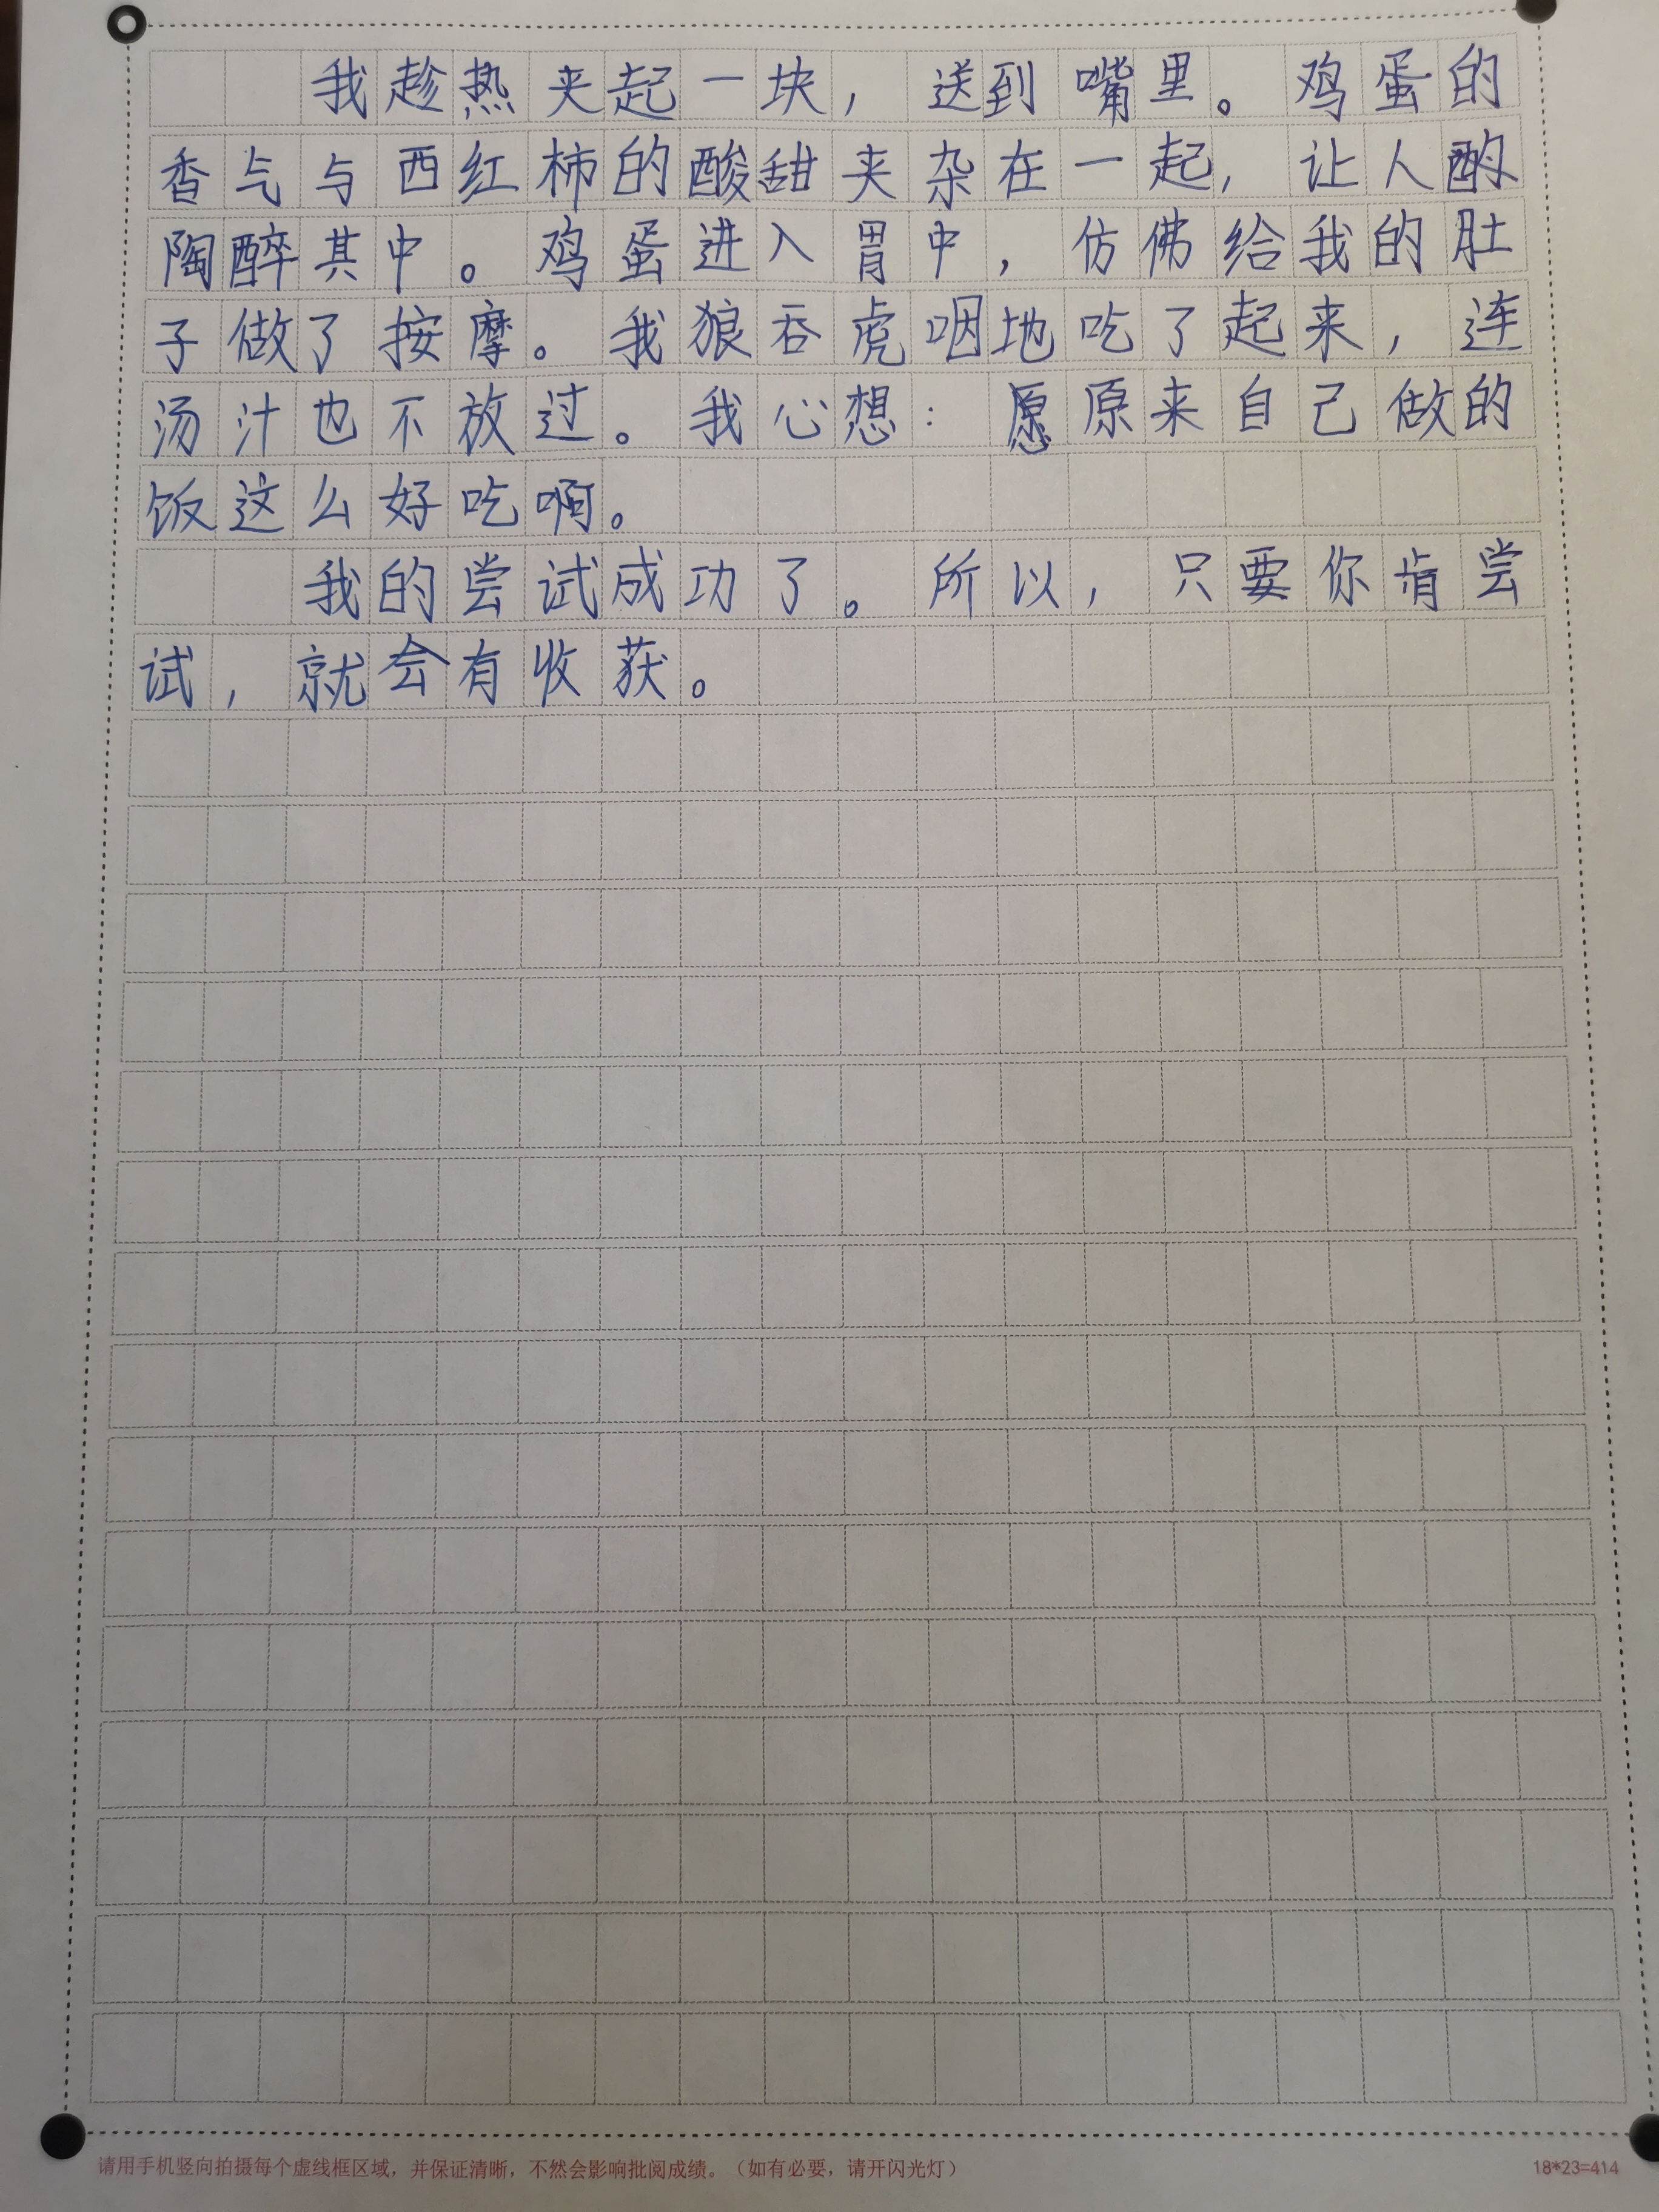 我趁热夹起一块，送到嘴里。鸡蛋的
香气与西红柿的酸甜夹杂在一起，让人
陶醉其中。鸡蛋进入胃中，仿佛给我的肚
子做了按摩。我狼吞虎咽地吃了起来，连
汤汁也不放过。我心想：原来自己做的
饭这么好吃啊。
我的尝试成功了。所以，只要你肯尝
试，就会有收获。
请用手机竖向拍摄每个虚线框区域，并保证清晰，不然会影响批阅成绩。（如有必要，请开闪光灯）
18*23=414